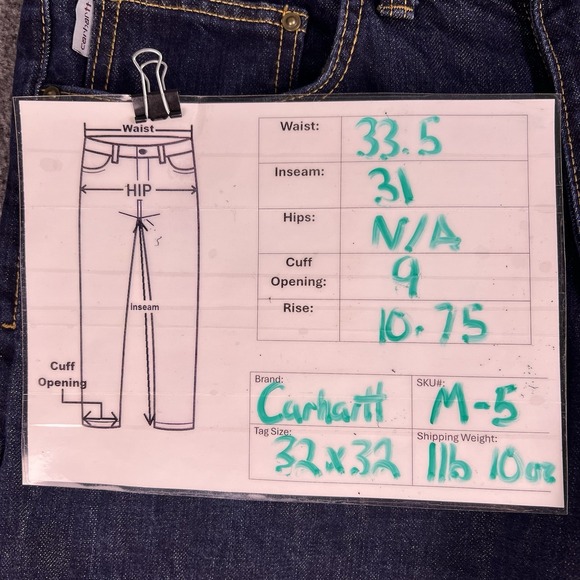 carhartt
Waist
HIP
Inseam
Cuff
Opening
Waist: 33.5
Inseam: 31
Hips: N/A
Cuff
Opening: 9
Rise: 10.75
Brand: Carhartt
SKU#: M-5
Tag Size: 32x32
Shipping Weight: 1lb 10oz